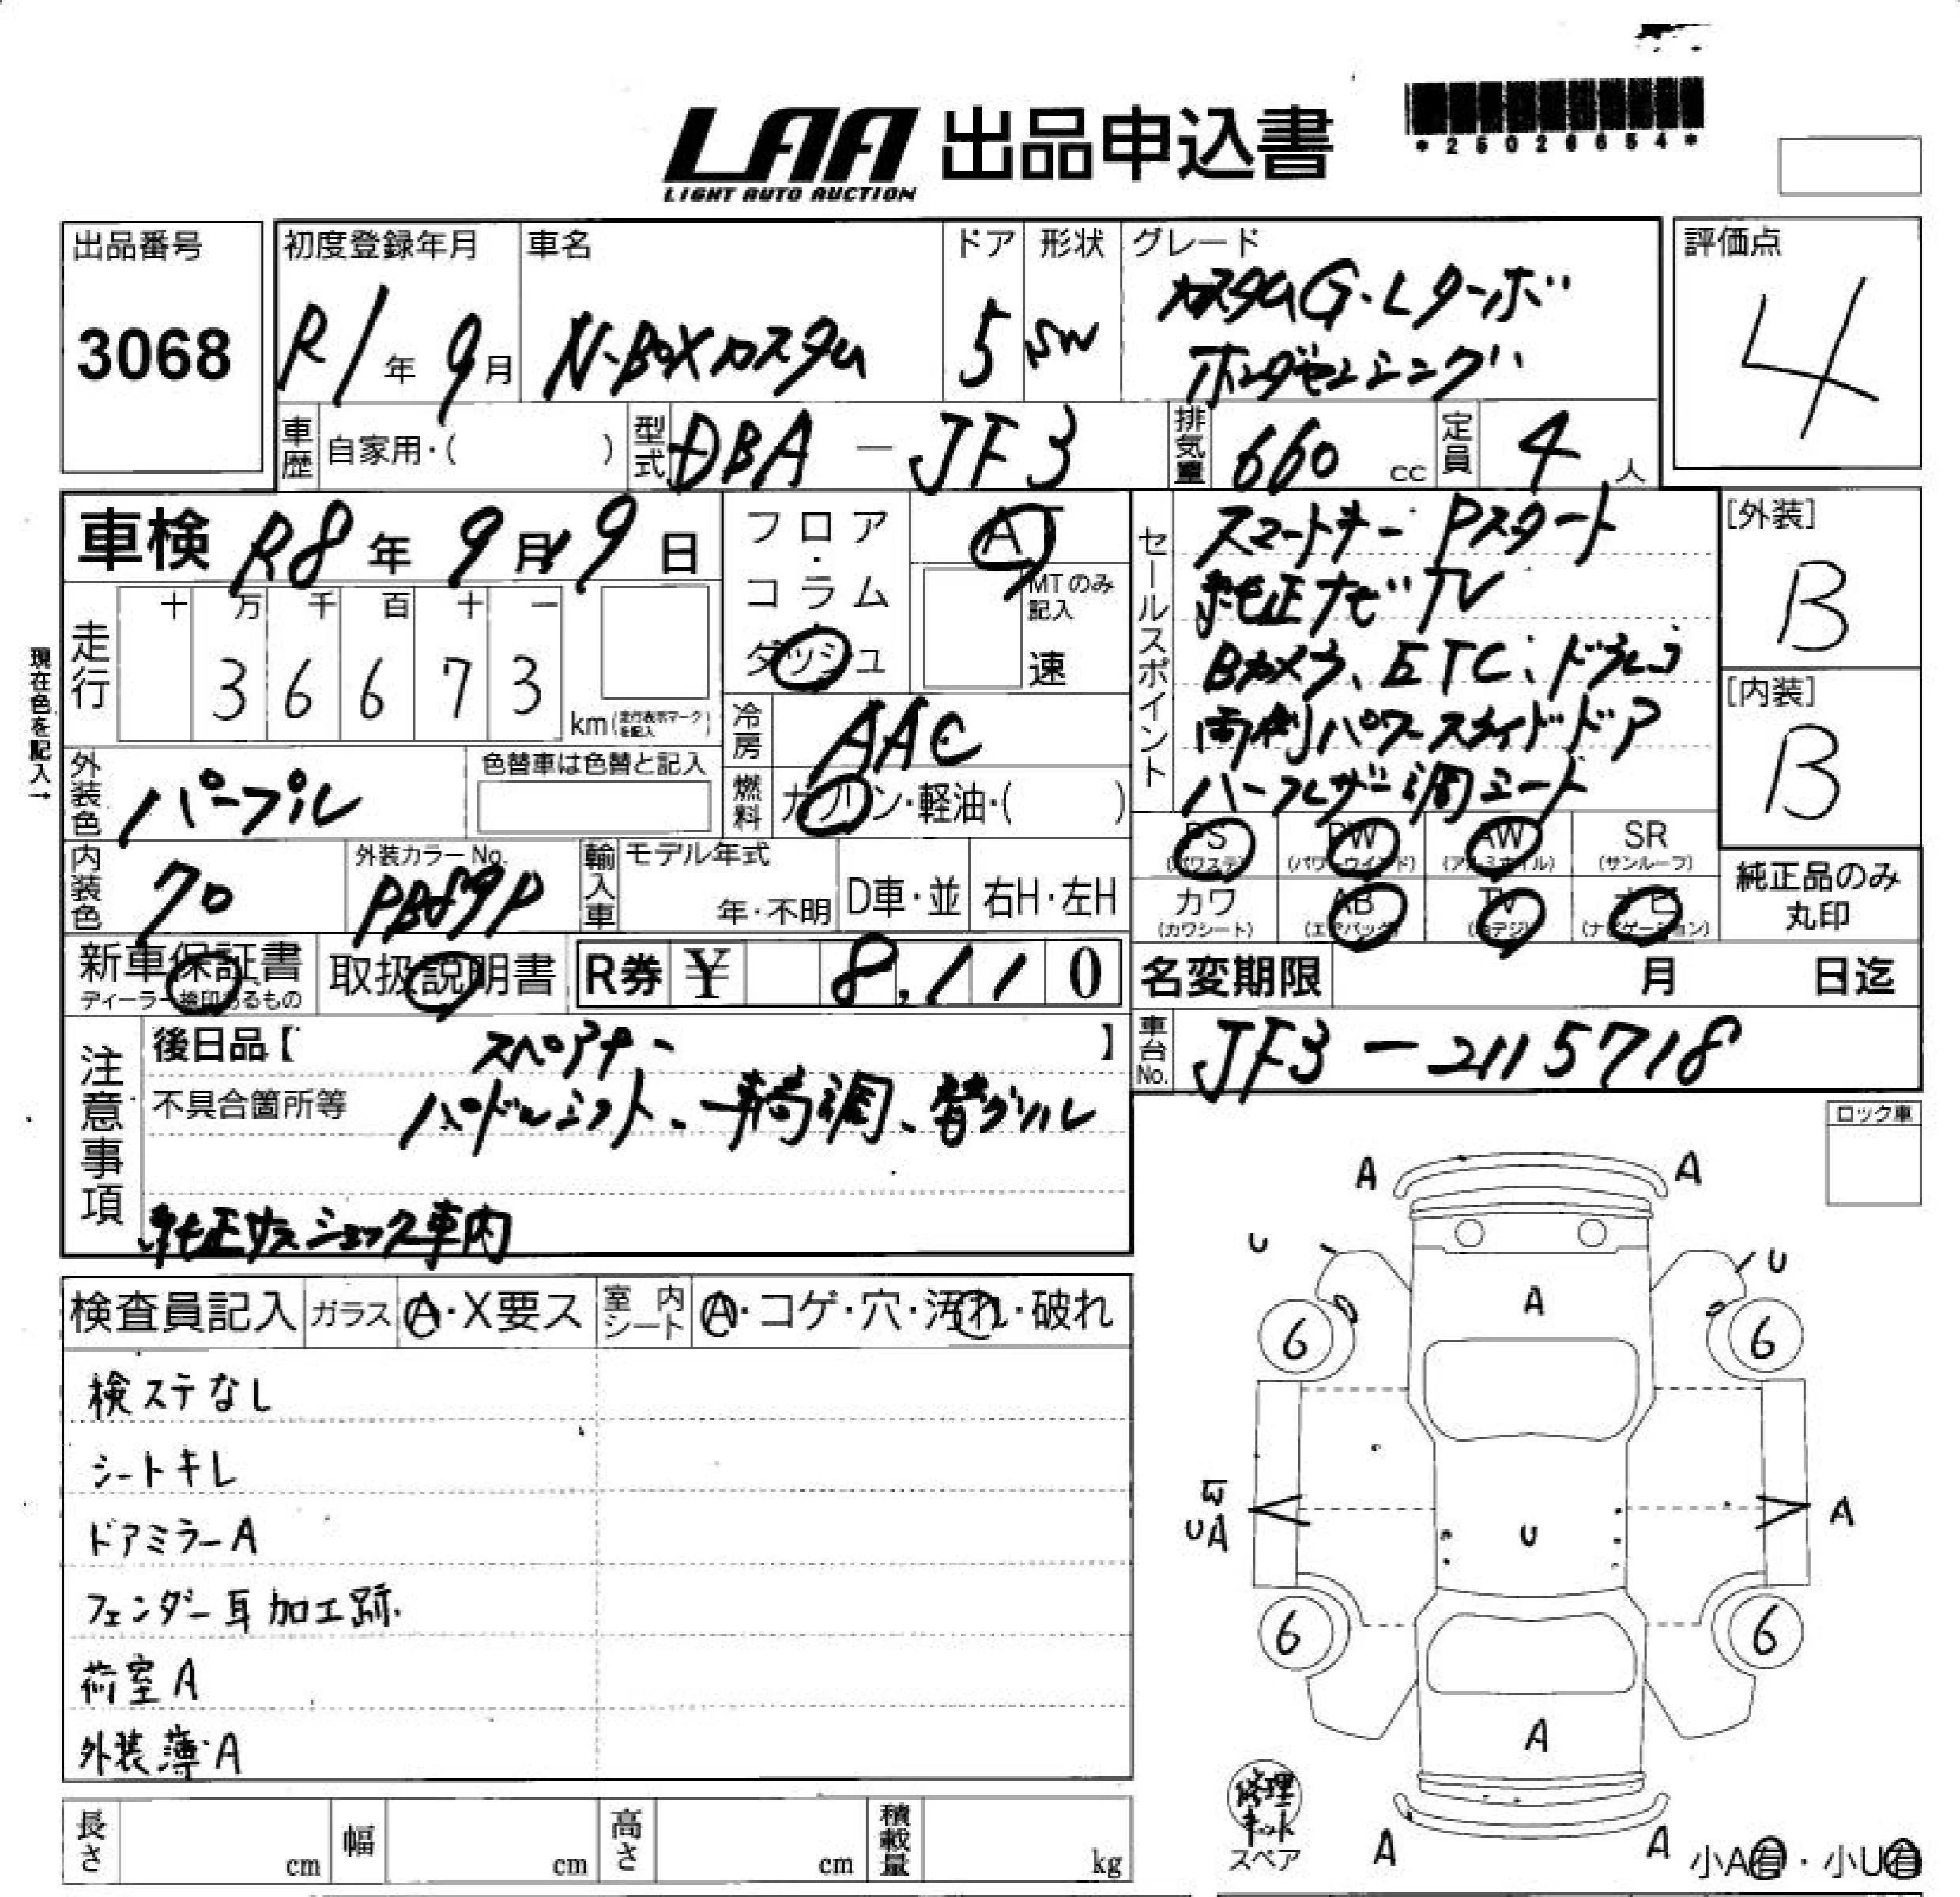 LAA 出品申込書
LIGHT AUTO AUCTION
*25026654*
出品番号
3068
初度登録年月
R1年9月
車名
N-BOXカスタム
ドア
5
形状
SW
グレード
カスタムG・Lターボ
ホンダセンシング
評価点
4
車歴 自家用・( )
型式 DBA - JF3
排気量 660 cc
定員 4 人
車検 R8年9月19日
フロア・コラム・ダッシュ
AT
MTのみ記入
速
現在色を記入→
走行
十 万 千 百 十 一
3 6 6 7 3
km (走行表示マークを記入)
冷房 AAC
外装色 パープル
色替車は色替と記入
燃料 ガソリン・軽油・( )
内装色 70
外装カラーNo.
PB89P
輸入車 モデル年式
年・不明
D車・並
右H・左H
セールスポイント
スマートキー Pスタート
純正ナビ TV
Bカメラ、ETC、ドラレコ
両側パワースライドドア
ハーフレザー調シート
[外装]
B
[内装]
B
PS (パワステ)
PW (パワーウインド)
AW (アルミホイル)
SR (サンルーフ)
カワ (カワシート)
AB (エアバッグ)
TV (地デジ)
ナビ (ナビゲーション)
純正品のみ
丸印
新車保証書
ディーラー捺印あるもの
取扱説明書
R券 ¥ 8,110
名変期限 月 日迄
車台No. JF3-2115718
注意事項
後日品【 スペアキー 】
不具合箇所等 パドルシフト、車高調、替グリル
純正サスショック車内
ロック車
検査員記入
ガラス A・X要ス
室内シート A・コゲ・穴・汚れ・破れ
検ステなし
シートキレ
ドアミラーA
フェンダー耳加工跡
荷室A
外装薄A
A A
U U
A
6 6
UA
U
A
6 6
A
A A
修理キット
スペア
小A有・小U有
長さ cm
幅 cm
高さ cm
積載量 kg